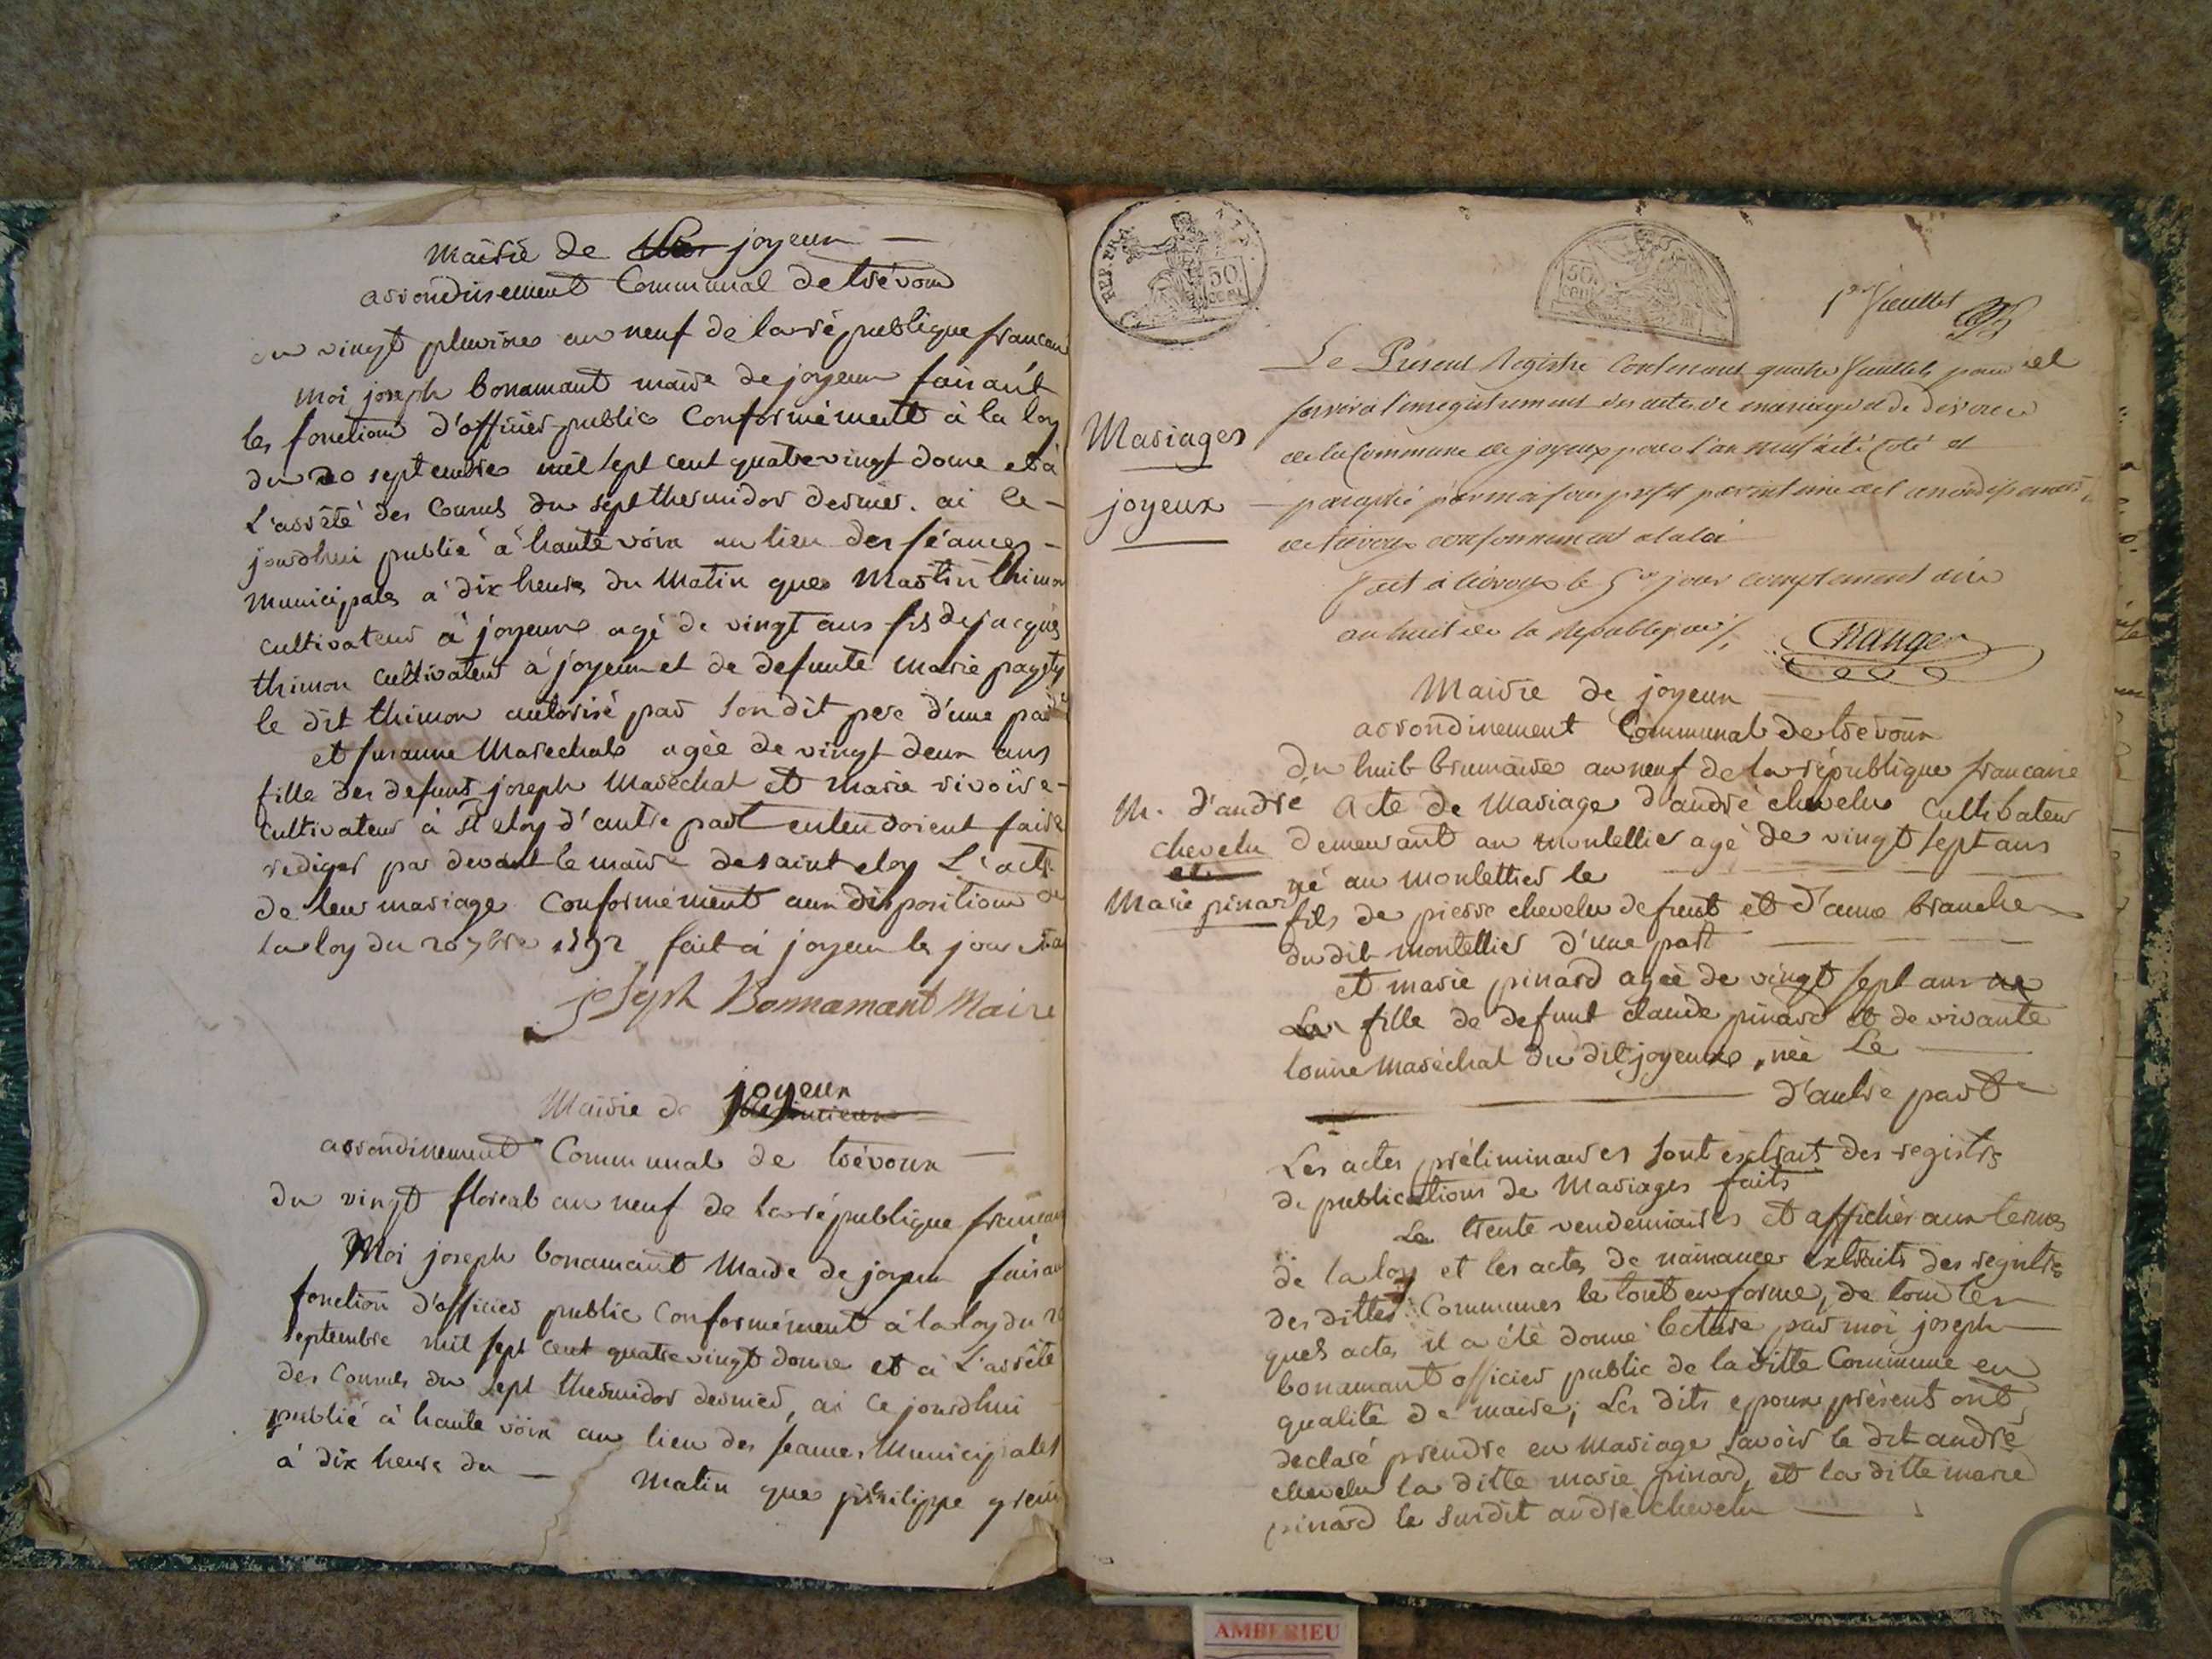 Mairie de joyeux
arrondissement Communal de trévoux
du vingt pluviose an neuf de la république francai
moi joseph bonamant maire de joyeux faisant
les fonctions d'officier public Conformément à la loy
du 20 septembre mil sept cent quatre vingt douze et à
L'arrêté des Consuls du sept thermidor dernier. ai ce-
jourdhui publié à haute voix au lieu des séances-
municipales à dix heures du Matin que Martin thimon
cultivateur à joyeux agé de vingt ans fils de jacques
thimon cultivateur à joyeux et de defunte marie
le dit thimon autorisé par son dit pere d'une part
et susanne Marechale agée de vingt deux ans
fille des defunts joseph Maréchal et marie rivoire-
cultivateur à St eloy d'autre part entendoient faire
rediger par devant le maire de saint eloy L'acte
de leur mariage Conformément aux dispositions de
la loy du 20 7bre 1792 fait à joyeux le jour et an
joseph Bonnamant Maire
Mairie de joyeux
arrondissement Communal de trévoux
du vingt floreal an neuf de la république francai
Moi joseph bonamant Maire de joyeux faisan
fonction d'officier public Conformément à la loy du 20
septembre mil sept cent quatre vingt douze et à L'arrêté
des Consuls du sept thermidor dernier, ai ce jourdhui
publié à haute voix au lieu des seances Municipales
à dix heure du — Matin que philippe
REP. FRA.
50
CENT.
50
CENT
1er feuillet
Mariages
joyeux
Le Présent Registre Contenant quatre feuillets pour
servir à l'enregistrement des actes de mariage et de divorce
de la Commune de joyeux pour l'an neuf a été Coté et
paraphé par moi sous prefet arrondissement
de trévoux conformement a la loi
fait à trévoux le 5e jour complementaire
an huit de la Republique
Mairie de joyeux
arrondissement Communal de trevoux
Du huit brumaire an neuf de la république francaise
M. d'andré
chevelu
et
Marie pinard
Acte de Mariage d'andré chevelu Cultivateur
demeurant au montellier agé de vingt sept ans
né au montellier le
fils de pierre chevelu defunt et d'anne branche
du dit montellier d'une part
et marie pinard agée de vingt sept ans ne
Les fille de defunt claude pinard et de vivante
Maréchal du dit joyeux, née Le
d'autre part
Les actes préliminaires sont extrait des registres
de publications de Mariages faits
Le trente vendemiaire et affichés aux termes
de la loy et les actes de naissances extraits des registres
des dittes Communes le tout en forme, de tous les
quels actes il a été donné lecture par moi joseph
bonamant officier public de la ditte Commune en
qualité de maire; Les dits epoux présent ont
declaré prendre en Mariage savoir le dit andré
chevelu la ditte marie pinard, et la ditte marie
pinard le susdit andré chevelu
AMBERIEU